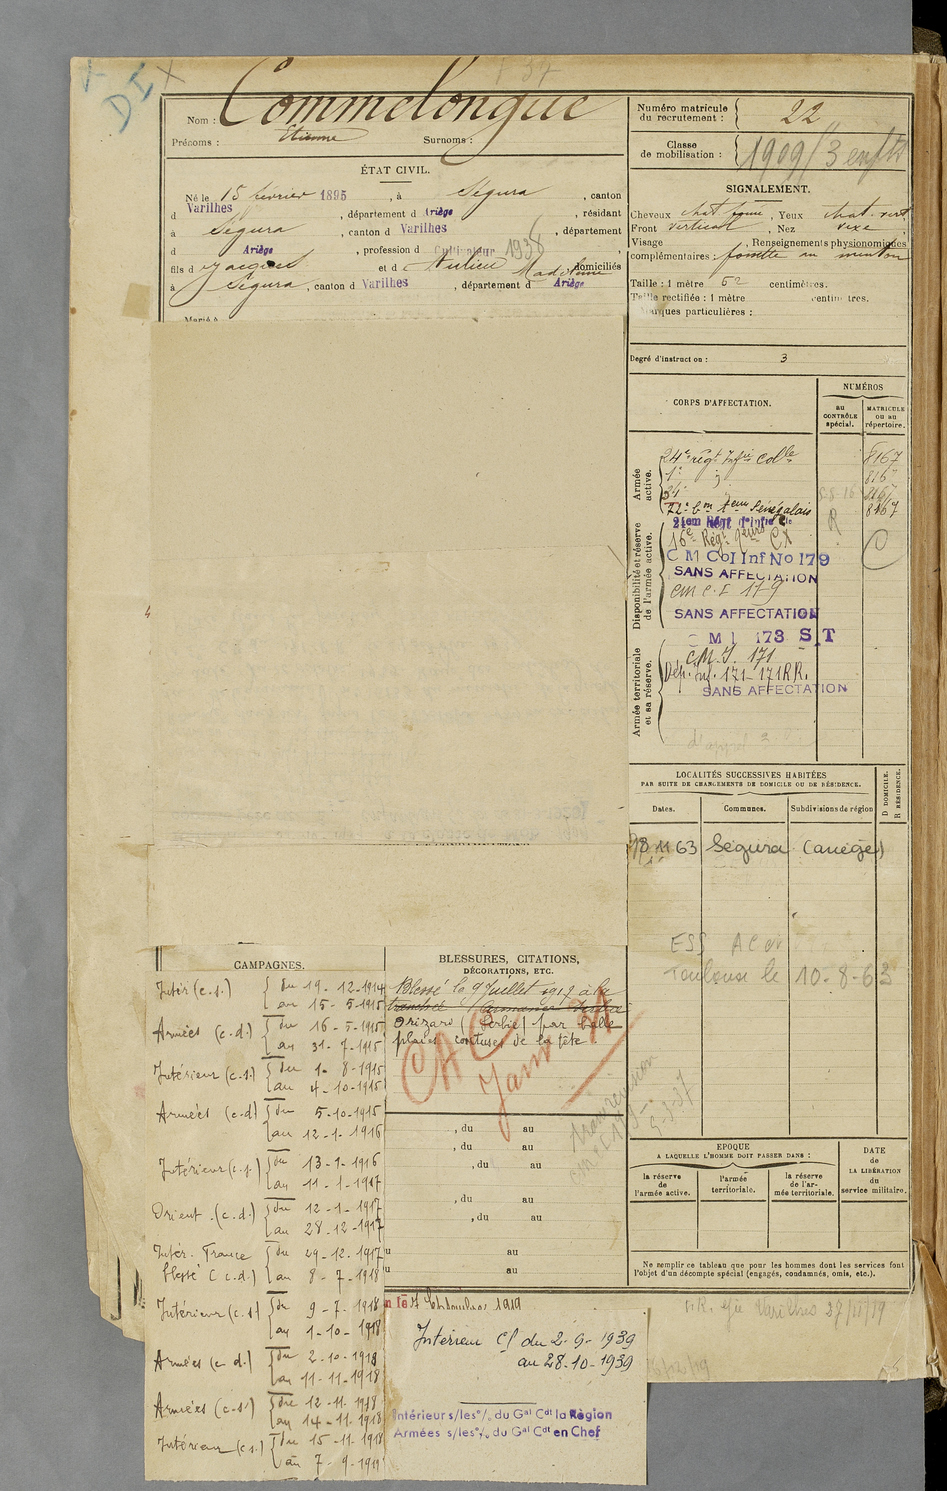 DI
Nom : Commelongue
Prénoms : Etienne Surnoms :
ÉTAT CIVIL.
Né le 15 février 1895, à Ségura, canton
d Varilhes, département d Ariège, résidant
à Ségura, canton d Varilhes, département
d Ariège, profession d Cultivateur 1938
fils d Jacques et d Madeleine domiciliés
à Ségura, canton d Varilhes, département d Ariège
Numéro matricule
du recrutement : 22
Classe
de mobilisation : 1909/3 enfts
SIGNALEMENT.
Cheveux chat. foncé, Yeux chat. vert
Front vertical, Nez
Visage , Renseignements physionomiques
complémentaires : fossette au menton
Taille : 1 mètre 62 centimètres.
Taille rectifiée : 1 mètre centimètres.
Marques particulières :
Degré d'instruction : 3
CORPS D'AFFECTATION.
NUMÉROS
au
CONTRÔLE
spécial.
MATRICULE
ou au
répertoire.
Armée
active.
24e régt Infie Colle 8167
Sénégalais 8167
Disponibilité et réserve
de l'armée active.
C M Col Inf No 179
SANS AFFECTATION
CM C.I 179
SANS AFFECTATION
Armée territoriale
et sa réserve.
C M I 173 S.T
C.M.I. 171
Dép. Inf. 171-171 RR.
SANS AFFECTATION
LOCALITÉS SUCCESSIVES HABITÉES
PAR SUITE DE CHANGEMENTS DE DOMICILE OU DE RÉSIDENCE.
Dates. Communes. Subdivisions de région
D DOMICILE.
R RÉSIDENCE.
18 11 63 Ségura (Ariège)
Toulouse le 10-8-63
EPOQUE
A LAQUELLE L'HOMME DOIT PASSER DANS :
la réserve
de
l'armée active.
l'armée
territoriale.
la réserve
de l'ar-
mée territoriale.
DATE
de
LA LIBÉRATION
du
service militaire.
Ne remplir ce tableau que pour les hommes dont les services font
l'objet d'un décompte spécial (engagés, condamnés, omis, etc.).
CAMPAGNES.
Intér (c.s.) du 19-12-1914
au 15-5-1915
Armées (c.d.) du 16-5-1915
au 31-7-1915
Intérieur (c.s.) du 1-8-1915
au 4-10-1915
Armées (c.d) du 5-10-1915
au 12-1-1916
Intérieur (c.s.) du 13-1-1916
au 11-1-1917
Orient (c.d.) du 12-1-1917
au 28-12-1917
Intér. France du 29-12-1917
blessé (c.d.) au 8-7-1918
Intérieur (c.s) du 9-7-1918
au 1-10-1918
Armées (c.d.) du 2-10-1918
au 11-11-1918
Armées (c.s.) du 12-11-1918
au 14-11-1918
Intérieur (c.s.) du 15-11-1918
au 7-9-1919
BLESSURES, CITATIONS,
DÉCORATIONS, ETC.
Blessé le 9 Juillet 1917 à la
tranchée
(Serbie) par balle
plaies contuses de la tête
CAC
, du au
, du au
, du au
, du au
, du au
au
au
7 Septembre 1919
Intérieur CS du 2-9-1939
au 28-10-1939
Intérieur s/les o/ du Gal Cdt la Région
Armées s/les o/ du Gal Cdt en Chef